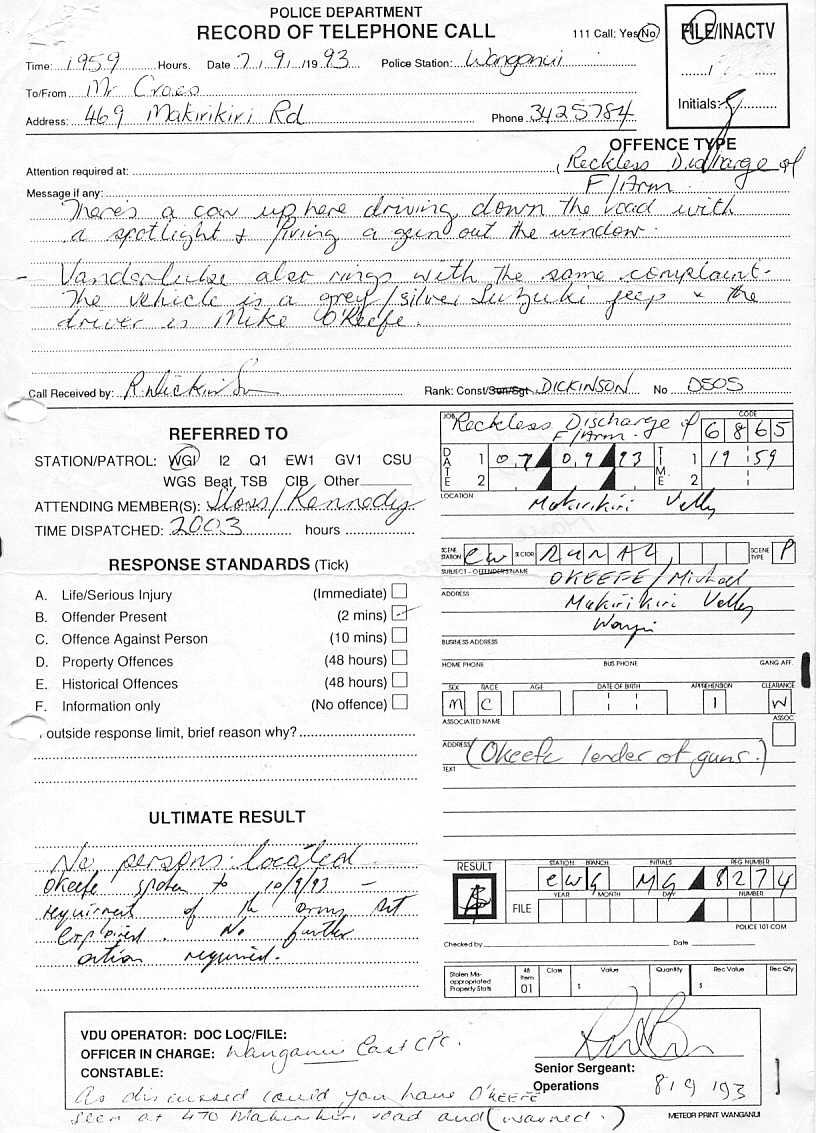 POLICE DEPARTMENT
RECORD OF TELEPHONE CALL
111 Call: Yes/No
FILE/INACTV
Time: 1959 Hours. Date 7/9/1993 Police Station: Wanganui
To/From Mr Craes
Address: 469 Makirikiri Rd Phone 3425784
Initials:
OFFENCE TYPE
Attention required at: Reckless Discharge of
F/Arm.
Message if any:
There's a car up here driving down the road with
a spotlight & firing a gun out the window.
Vanderlubie also rings with the same complaint.
The vehicle is a grey/silver Suzuki jeep & the
driver is Mike O'Keefe.
Call Received by: R Dickinson Rank: Const/Sun/Sgt DICKINSON No D505
REFERRED TO
STATION/PATROL: WGI I2 Q1 EW1 GV1 CSU
WGS Beat TSB CIB Other
ATTENDING MEMBER(S): /Kennedy
TIME DISPATCHED: 2003 hours
RESPONSE STANDARDS (Tick)
A. Life/Serious Injury (Immediate)
B. Offender Present (2 mins)
C. Offence Against Person (10 mins)
D. Property Offences (48 hours)
E. Historical Offences (48 hours)
F. Information only (No offence)
outside response limit, brief reason why?
ULTIMATE RESULT
No persons located
Okeefe spoken to 10/9/93 -
requirment of the arms act
explained. No further
action required.
JOB Reckless Discharge of F/Arm. CODE 6865
DATE 1 07 09 93 TIME 1 19 59
2 2
LOCATION
Makirikiri Velly
SCENE STATION CW SECTOR RURAL SCENE TYPE P
SUBJECT - OFFENDER'S NAME
OKEEFE/Michael
ADDRESS
Makirikiri Velly
Wangi
BUSINESS ADDRESS
HOME PHONE BUS PHONE GANG AFF.
SEX RACE AGE DATE OF BIRTH APPREHENSION CLEARANCE
M C 1 W
ASSOCIATED NAME ASSOC
ADDRESS
(Okeefe lender of guns.)
TEXT
RESULT
STATION BRANCH INITIALS REG NUMBER
CWG MG 8274
YEAR MONTH DAY NUMBER
FILE
POLICE 101 COM
Checked by Date
Stolen Mis-appropriated Property Stats 48 Item 01 Class Value $ Quantity Rec Value $ Rec Qty
VDU OPERATOR: DOC LOC/FILE:
OFFICER IN CHARGE: Wanganui East CPC.
CONSTABLE:
As discussed could you have O'KEEFE
seen at 470 Makirikiri road and (warned.)
Senior Sergeant:
Operations 8/9/93
METEOR PRINT WANGANUI